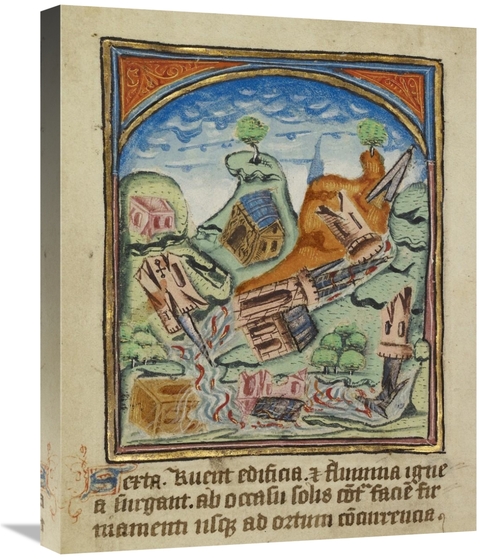 Sexta. Ruent edificia. & flumina igne
a surgant. ab occasu solis cōt' faciē fir
mamenti usqꝫ ad ortum cōcurrencia.